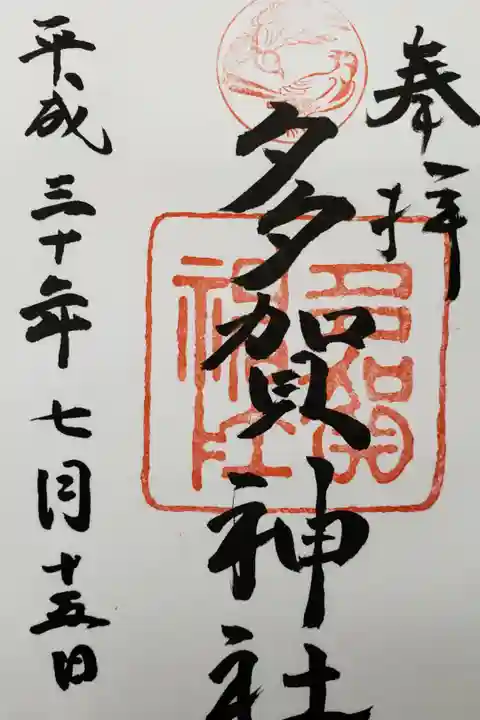 奉拝
多賀神社
平成三十年七月十五日